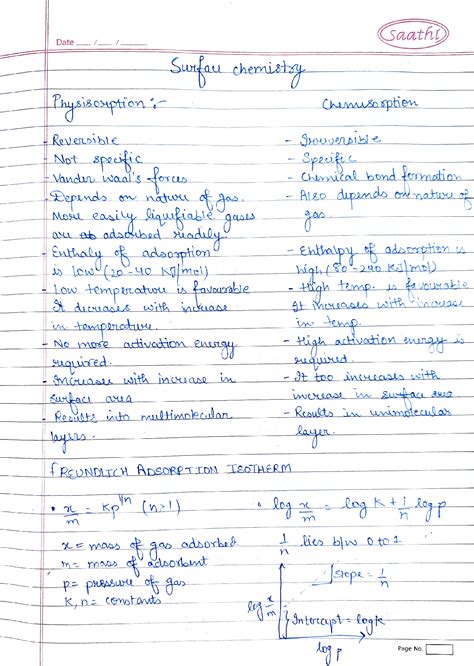 Saathi
Date __/__/__
Surface chemistry
Physisorption :-
Chemisorption
- Reversible
- Not specific
- Vander Waal's forces
- Depends on nature of gas.
More easily liquifiable gases
are adsorbed readily.
- Enthaly of adsorption
is low (20-40 KJ/mol)
- Low temperature is favourable
It dicreases with increase
in temperature.
- No more activation energy
required.
- Increase with increase in
surface area
- Results into multimolecular
layers.
- Irreversible
- Specific
- Chemical bond formation
- Also depends on nature of
gas.
- Enthalpy of adsorption is
high (80-240 KJ/mol)
- High temp. is favourable
It increases with increase
in temp.
- High activation energy is
required.
- It too increases with
increase in surface area
- Results in unimolecular
layer.
FREUNDLICH ADSORPTION ISOTHERM
• x/m = Kp^1/n (n>1)
x = mass of gas adsorbed
m = mass of adsorbent
p = pressure of gas
K, n = constants
• log x/m = log K + 1/n log p
1/n lies b/w 0 to 1
Slope = 1/n
log x/m
Intercept = log k
log p
Page No.